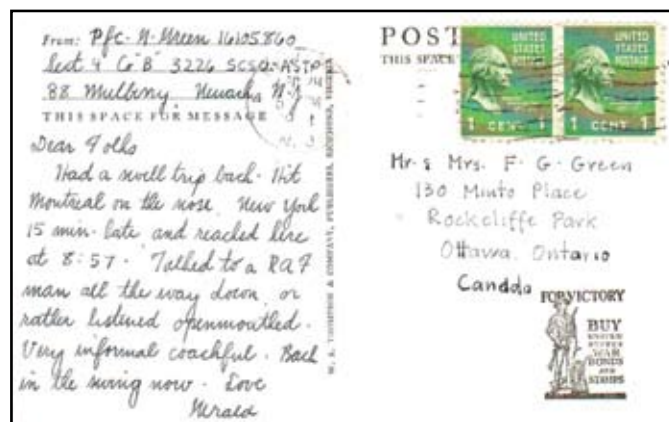 From: Pfc. N. Green 16105860
Sect 4 Co "B" 3226 SCSU. ASTP
88 Mulberry, Newark, N.J.
THIS SPACE FOR MESSAGE
Dear Folks
Had a swell trip back. Hit
Montreal on the nose. New York
15 min. late and reached here
at 8:57. Talked to a RAF
man all the way down, or
rather listened openmouthed.
Very informal coachful. Back
in the swing now. Love
W. M. THOMPSON & COMPANY, PUBLISHERS, RICHMOND, VIRGINIA
POST
THIS SPACE
UNITED
STATES
POSTAGE
1 CENT 1
UNITED
STATES
POSTAGE
1 CENT 1
Mr. & Mrs. F. G. Green
130 Minto Place
Rockcliffe Park
Ottawa, Ontario
Canada
FOR VICTORY
BUY
UNITED
STATES
WAR
BONDS
AND
STAMPS